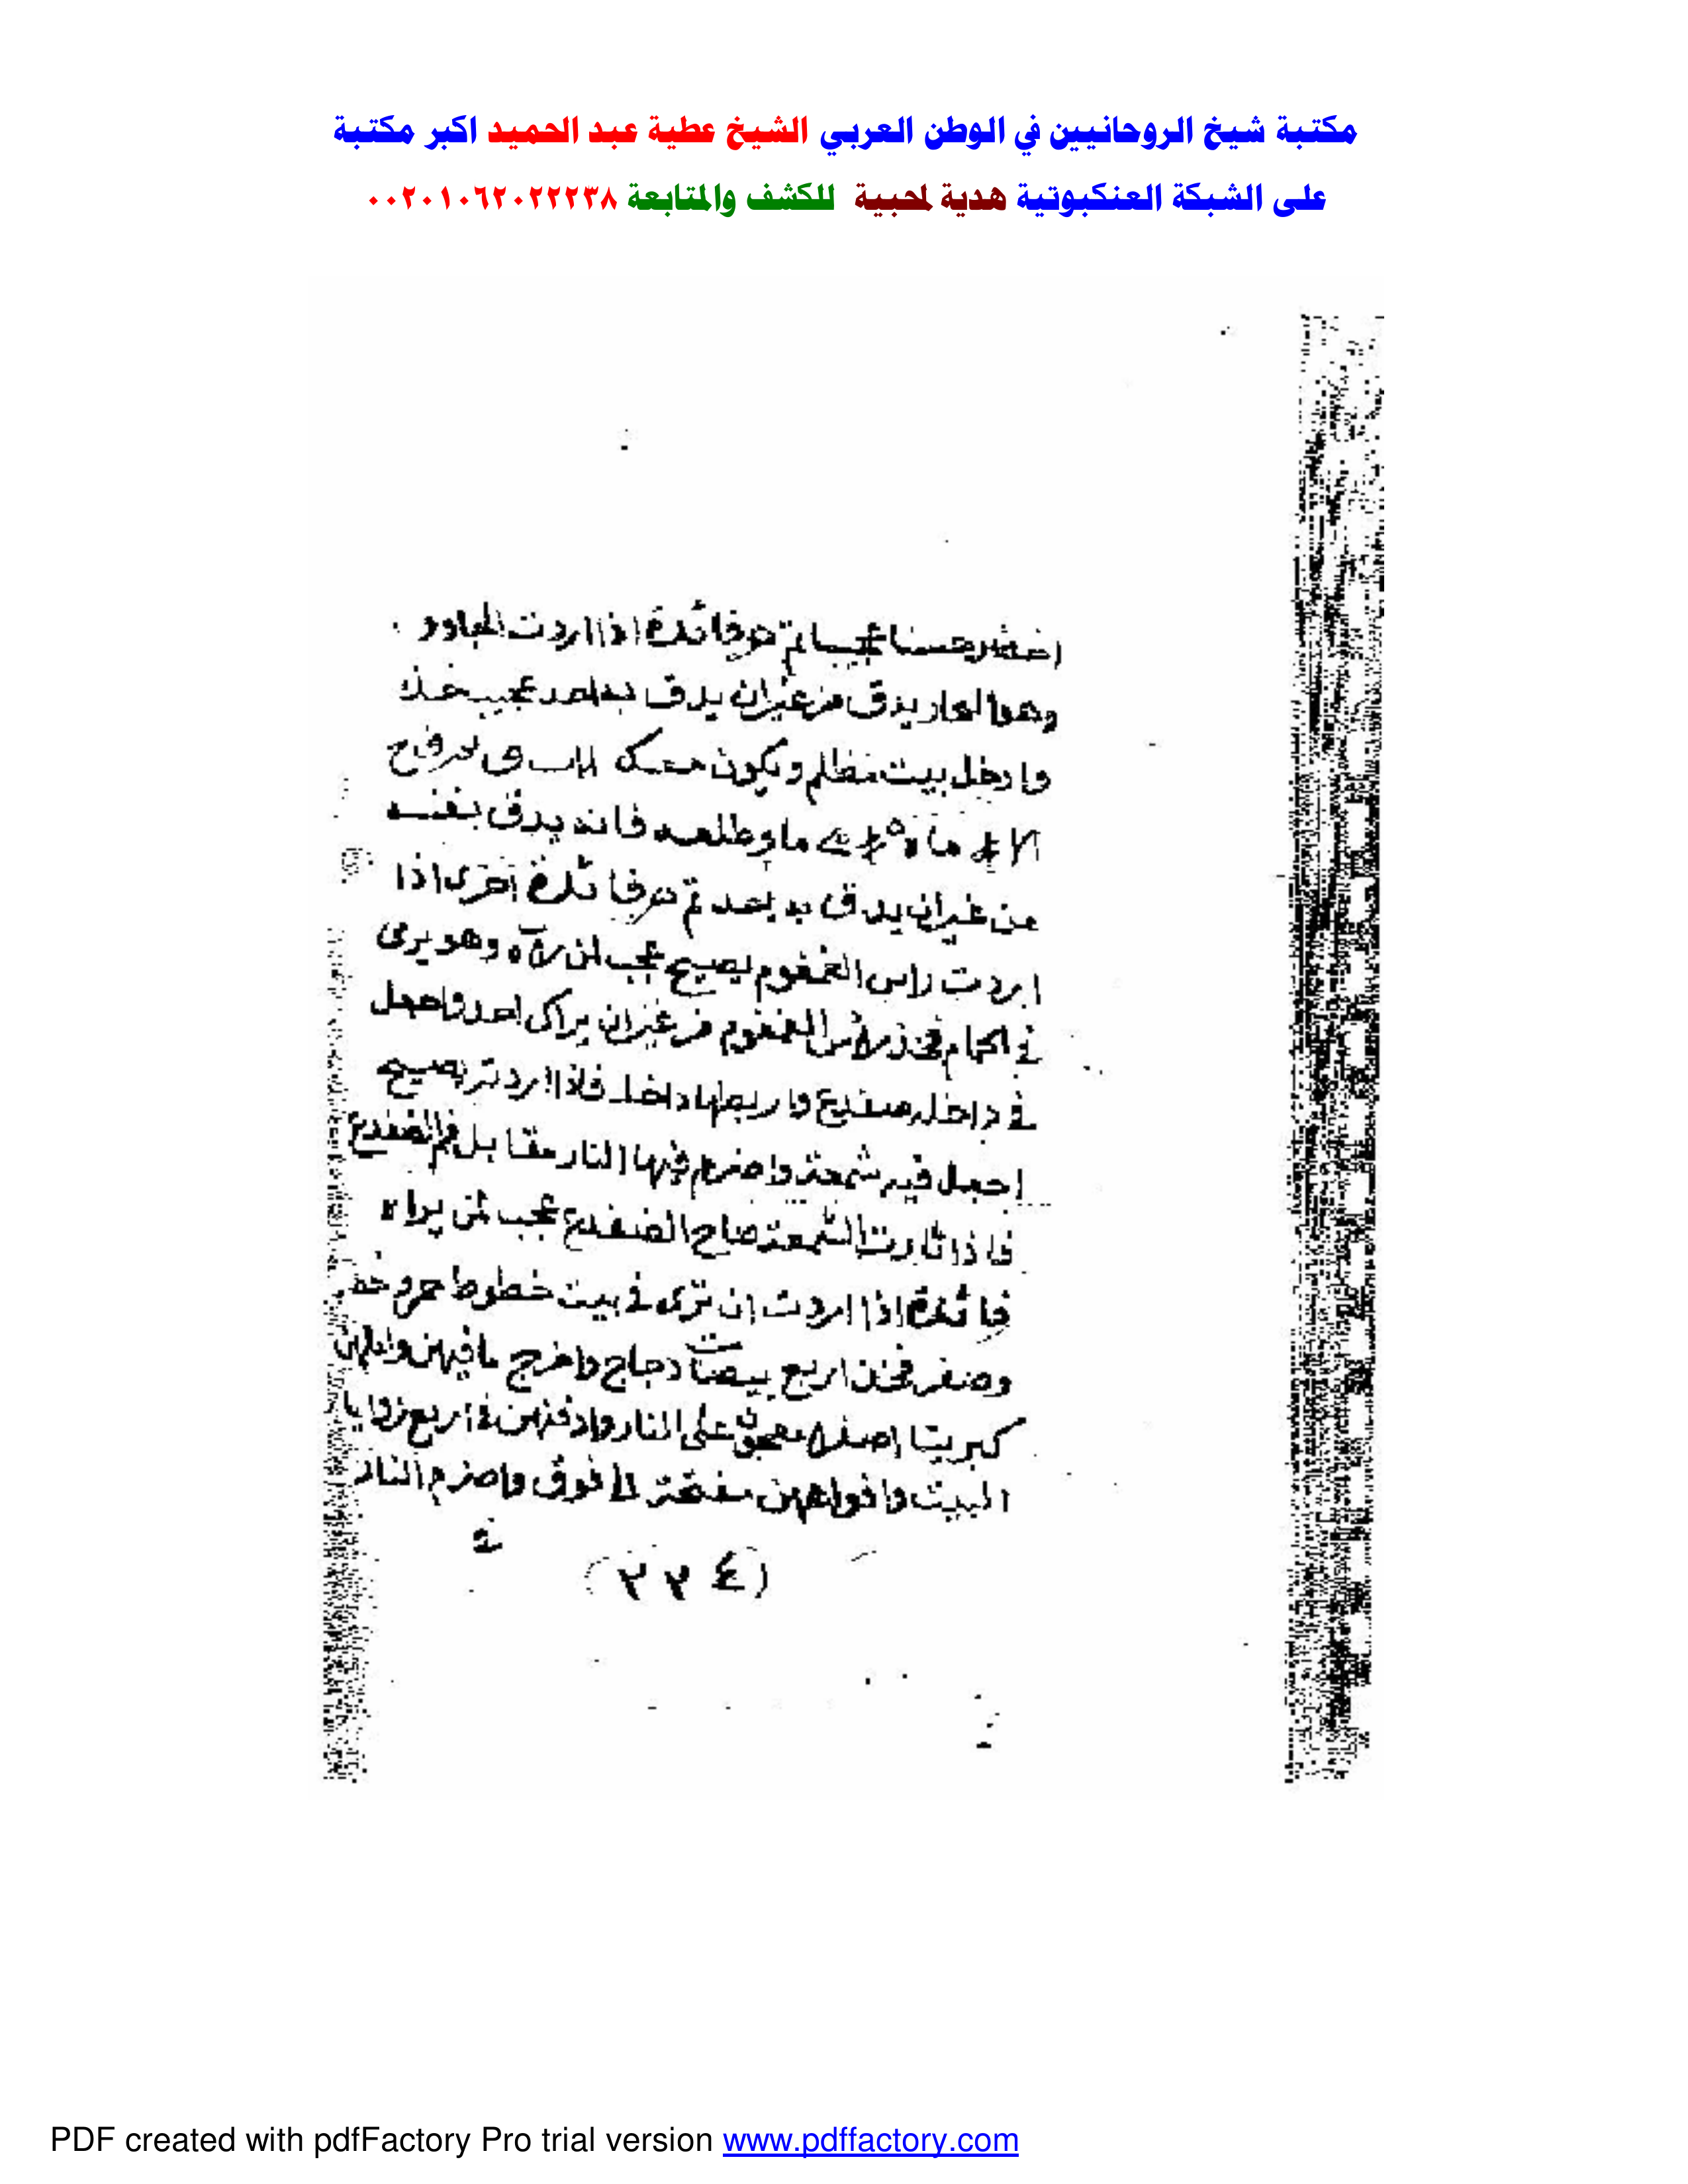 مكتبة شيخ الروحانيين في الوطن العربي الشيخ عطية عبد الحميد اكبر مكتبة
على الشبكة العنكبوتية هدية لمحبية للكشف والمتابعة ٠٠٢٠١٠٦٢٠٢٢٢٣٨
اخضر حسنا عجيبا تم هو فائدة اذا اردت
يدق من غير ان يدق عجيب خذ
وادخل بيت مظلم ويكون معك
فانه يدق بنفسه
من غير ان يدق به احد تم هو فائدة اخرى اذا
اردت راس الغمغوم يصيح عجب لمن رآه وهو يرى
في الحمام فخذ راس الغمغوم من غير ان يراك احد واجعل
في داخله ضفدع واربطها داخله فاذا اردته يصيح
اجعل فيه شمعة واضرم فيها النار مقابل فم الضفدع
فاذا ثارت الشمعة صاح الضفدع عجب لمن يراه
فائدة اذا اردت ان ترى في بيت خطوط حمر وخضر
وصفر فخذ اربع بيضات دجاج واخرج ما فيهن واملهن
كبريتا اصفر معجون على النار وادفنهن في اربع زوايا
البيت وافواههن مفتحة الى فوق واضرم النار
(٢٣٤)
PDF created with pdfFactory Pro trial version www.pdffactory.com